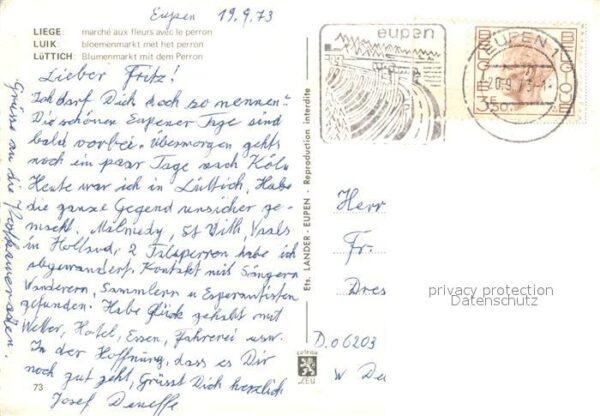 Eupen 19.9.73
LIEGE: marché aux fleurs avec le perron
LUIK: bloemenmarkt met het perron
LÜTTICH: Blumenmarkt mit dem Perron
Lieber Fritz!
Ich darf Dich doch so nennen?
Die schönen Eupener Tage sind
bald vorbei. Übermorgen gehts
noch ein paar Tage nach Köln
Heute war ich in Lüttich, Habe
die ganze Gegend unsicher ge-
macht. Malmedy, St Vith, Vaals
in Holland, 2 Talsperren habe ich
abgewandert. Kontakt mit Sängern
Wanderern, Sammlern u Esperantisten
gefunden. Habe Glück gehabt mit
Wetter, Hotel, Essen, Fahrerei usw.
In der Hoffnung, dass es Dir
noch gut geht, Grüsst Dich herzlich
Josef
Grüsse an die
73
Ets. LANDER - EUPEN - Reproduction interdite
eupen
EUPEN 1
20.9.73
BELGIE
350
Herr
Fr.
Dres
privacy protection
Datenschutz
D.06203
W De